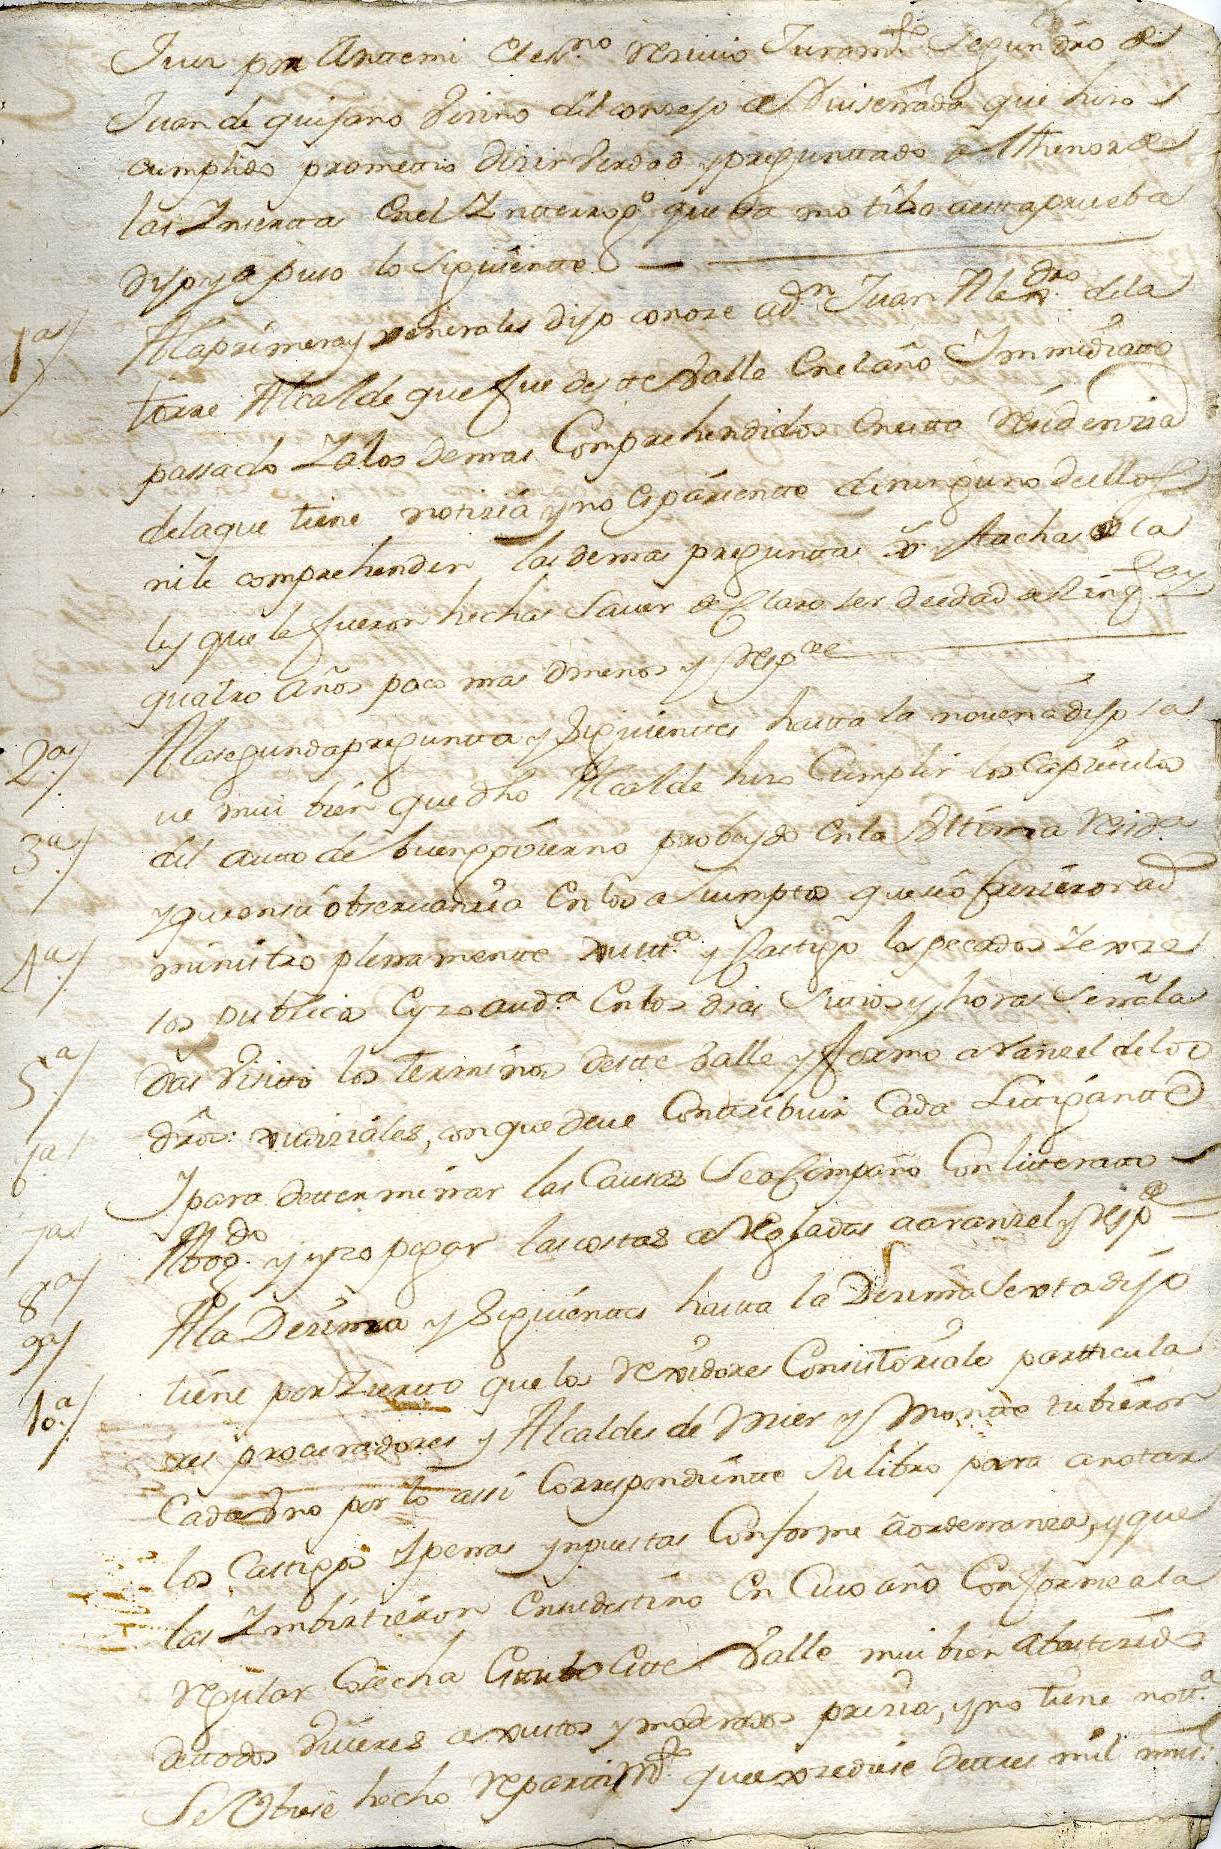 Juez por Antemi el es.no reciuio Juram.to segun dro de
Juan de quijano vezino del conzejo de Vuiseñada que hizo
cumplido prometio dezir verdad y preguntado al thenor de
las Insertas en el Interrog.o que da motibo a esta prueba
dijo y depuso lo siguiente
1a) Alaprimera y xenerales dijo conoze a dn Juan Alexdro dela
torre Alcalde que fue deste valle en el año Immediato
passado Y a los demas Comprehendidos en esta Residenzia
dela que tiene notizia y no es pariente de ninguno de ellos
ni le comprehenden las demas preguntas tachas de la
ley que le fueron hechas sauer declaro ser de edad de zinq.ta y
quatro años poco mas o menos y resp.de
2a) Ala segunda pregunta y siguientes hasta la nouena dijo sa
ue mui bien que dho Alcalde hizo Cumplir los Capitulos
3a) del auto de buen govierno probeydo en la vltima resid.a
y que en su obseruanzia en los asumptos que se ofrezieron ad
4a) ministro plenamente xustt.a y castigo los pecados y exze
sos publicos hizo aud.a en los dias sitios y horas señala
5a) das visito los terminos deste valle y formo aranzel de los
dros: xudiziales, con que deue Contribuir Cada Littigantte
6a) Y para determinar las Causas se acompaño Con litterato
7a) Abog.do y yzo pagar las costas arregladas a aranzel y resp.de
8a) Ala Dezima y siguientes hasta la Dezima sexta dijo
9a) tiene por zierto que los rexidores Consistoriales particula
10a) res procuradores y Alcaldes de Mier y Monte tubieron
Cada vno por lo assi Correspondiente su libro para anotar
los Castigos y penas ynpuestas Conforme a ordenanza, y que
las Imbirtieron en su destino en Cuio año Conforme a la
regular Cosecha estubo este valle mui bien abastezido
de todos viueres a xustos y moderados prezios, y no tiene nott.a
se vbiese hecho repartim.to que exzediese de tres mil mrs.